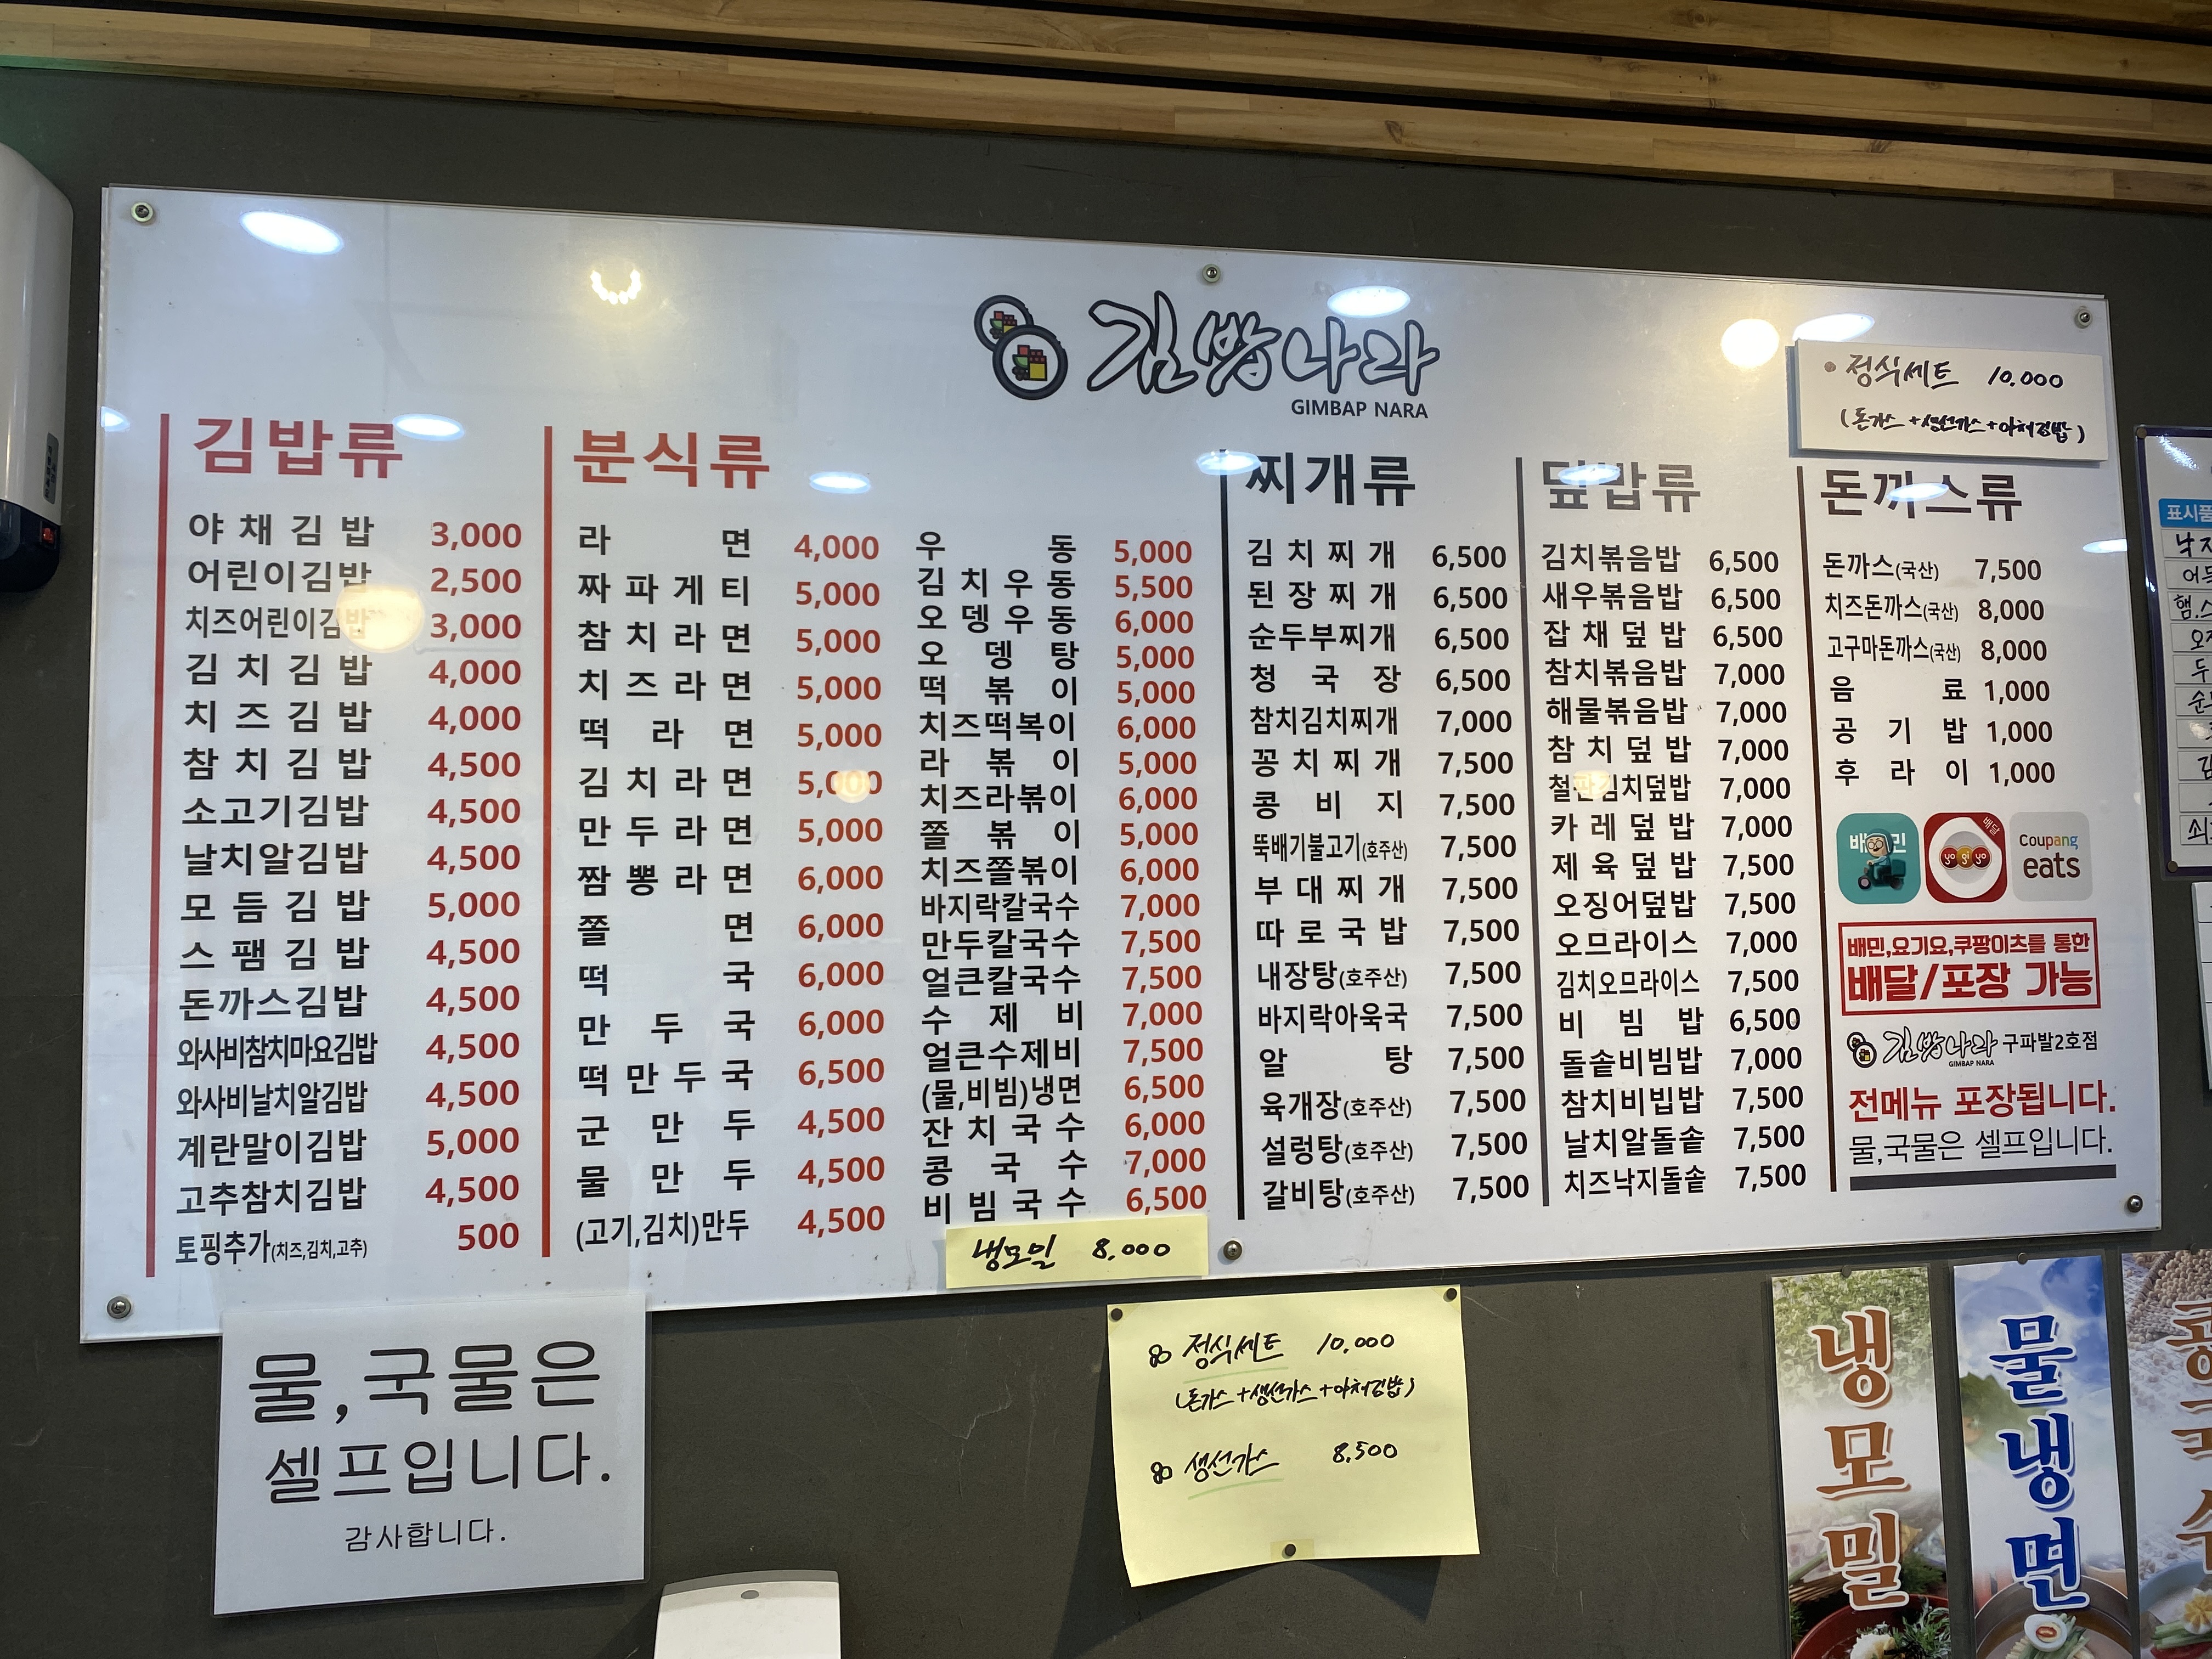 김밥나라
GIMBAP NARA
정식세트 10,000
(돈가스+생선가스+야채김밥)
김밥류
야채김밥 3,000
어린이김밥 2,500
치즈어린이김밥 3,000
김치김밥 4,000
치즈김밥 4,000
참치김밥 4,500
소고기김밥 4,500
날치알김밥 4,500
모듬김밥 5,000
스팸김밥 4,500
돈까스김밥 4,500
와사비참치마요김밥 4,500
와사비날치알김밥 4,500
계란말이김밥 5,000
고추참치김밥 4,500
토핑추가(치즈,김치,고추) 500
분식류
라면 4,000
짜파게티 5,000
참치라면 5,000
치즈라면 5,000
떡라면 5,000
김치라면 5,000
만두라면 5,000
짬뽕라면 6,000
쫄면 6,000
떡국 6,000
만두국 6,000
떡만두국 6,500
군만두 4,500
물만두 4,500
(고기,김치)만두 4,500
우동 5,000
김치우동 5,500
오뎅우동 6,000
오뎅탕 5,000
떡볶이 5,000
치즈떡복이 6,000
라볶이 5,000
치즈라볶이 6,000
쫄볶이 5,000
치즈쫄볶이 6,000
바지락칼국수 7,000
만두칼국수 7,500
얼큰칼국수 7,500
수제비 7,000
얼큰수제비 7,500
(물,비빔)냉면 6,500
잔치국수 6,000
콩국수 7,000
비빔국수 6,500
냉모밀 8,000
찌개류
김치찌개 6,500
된장찌개 6,500
순두부찌개 6,500
청국장 6,500
참치김치찌개 7,000
꽁치찌개 7,500
콩비지 7,500
뚝배기불고기(호주산) 7,500
부대찌개 7,500
따로국밥 7,500
내장탕(호주산) 7,500
바지락아욱국 7,500
알탕 7,500
육개장(호주산) 7,500
설렁탕(호주산) 7,500
갈비탕(호주산) 7,500
덮밥류
김치볶음밥 6,500
새우볶음밥 6,500
잡채덮밥 6,500
참치볶음밥 7,000
해물볶음밥 7,000
참치덮밥 7,000
철판김치덮밥 7,000
카레덮밥 7,000
제육덮밥 7,500
오징어덮밥 7,500
오므라이스 7,000
김치오므라이스 7,500
비빔밥 6,500
돌솥비빔밥 7,000
참치비빕밥 7,500
날치알돌솥 7,500
치즈낙지돌솥 7,500
돈까스류
돈까스(국산) 7,500
치즈돈까스(국산) 8,000
고구마돈까스(국산) 8,000
음료 1,000
공기밥 1,000
후라이 1,000
배민
배달 yo gi yo
Coupang eats
배민,요기요,쿠팡이츠를 통한
배달/포장 가능
김밥나라 구파발2호점
GIMBAP NARA
전메뉴 포장됩니다.
물,국물은 셀프입니다.
물,국물은
셀프입니다.
감사합니다.
정식세트 10,000
(돈가스+생선가스+야채김밥)
생선가스 8,500
냉모밀
물냉면
콩국수